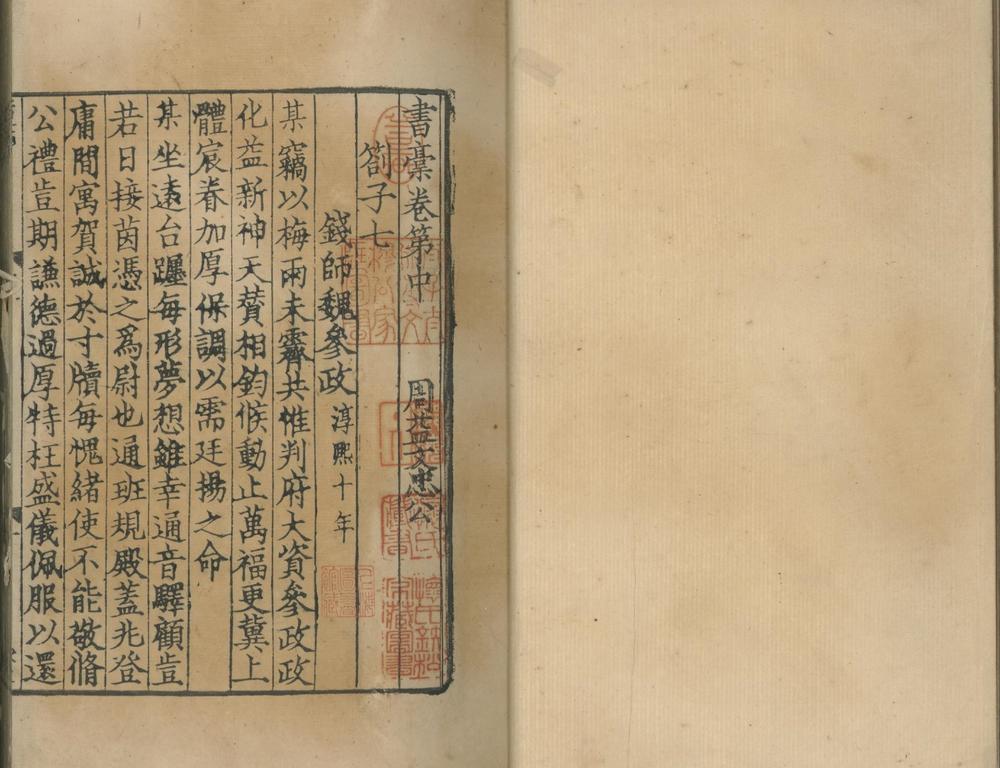 書稾卷第中 周益文忠公
劄子七
錢師魏參政 淳熙十年
某竊以梅雨未霽共惟判府大資參政政
化益新神天贊相鈞候動止萬福更冀上
體宸眷加厚保調以需廷揚之命
某坐遠台躔每形夢想雖幸通音驛顧豈
若日接茵憑之爲尉也通班規殿蓋兆登
庸間寓賀誠於寸牘每愧緒使不能敬脩
公禮豈期謙德過厚特枉盛儀佩服以還